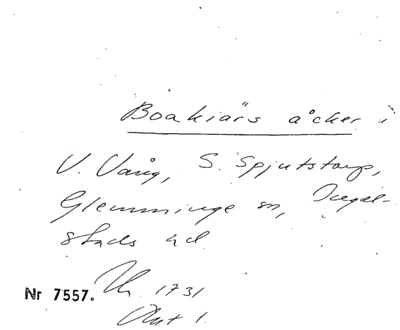 Boakiärs åcker i
V. Vång, S. Spjutstorp,
Glemminge sn, Ingel-
stads hd
Nr 7557. 1731
Akt 1.